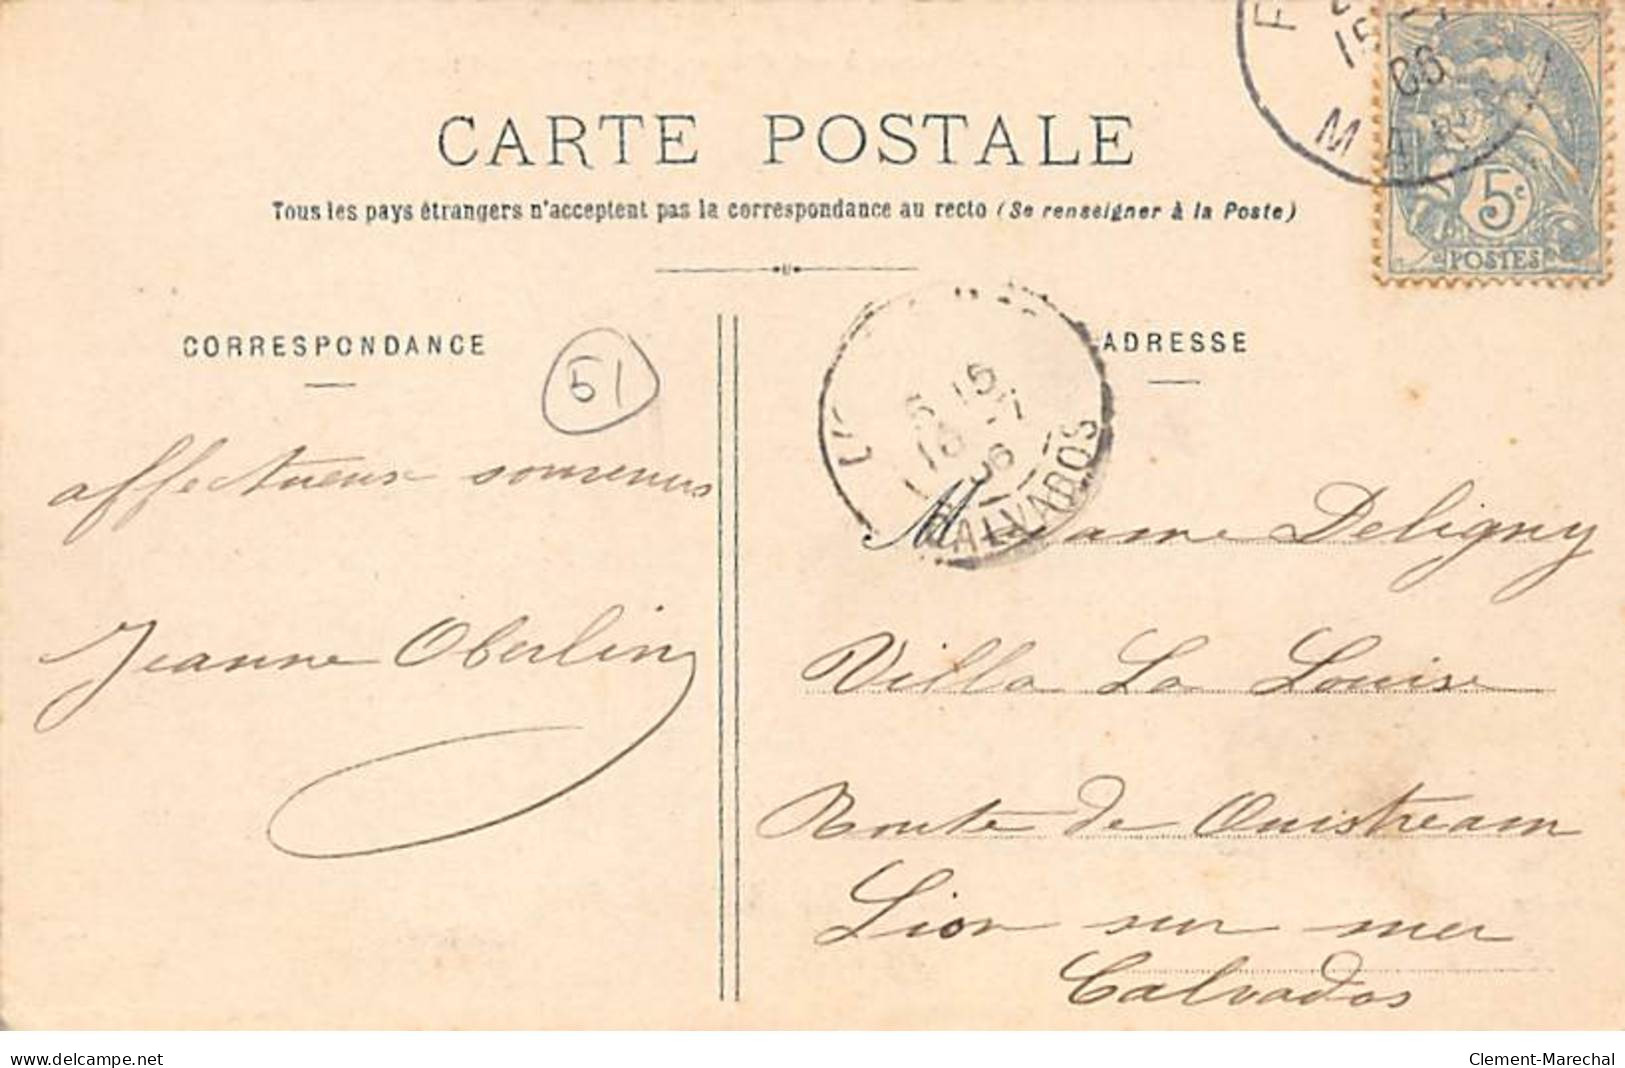 CARTE POSTALE
Tous les pays étrangers n'acceptent pas la correspondance au recto (Se renseigner à la Poste)
06
MAR
5c
POSTES
CORRESPONDANCE
51
ADRESSE
5 15
06
CALVADOS
affectueux souvenirs
Jeanne Oberlin
Madame Deligny
Villa La Louise
Route de Ouistream
Lion sur mer
Calvados
www.delcampe.net
Clement-Marechal